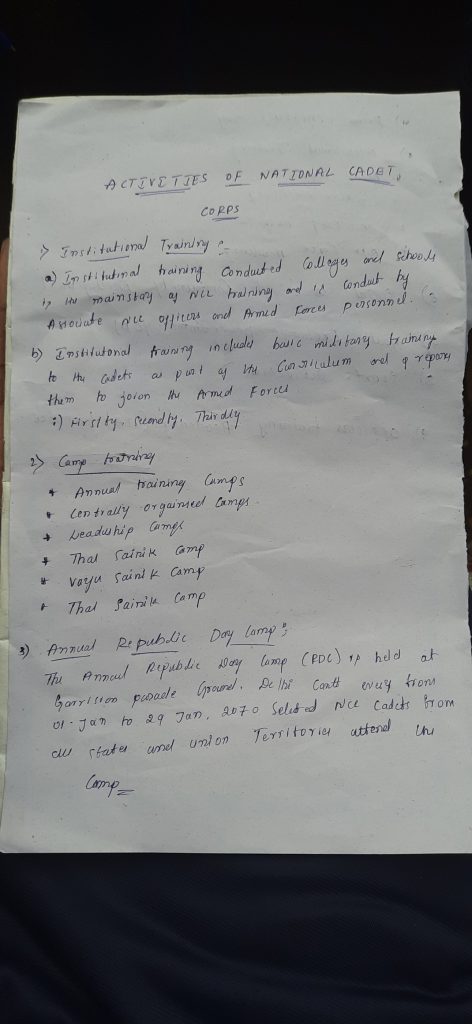 ACTIVETIES OF NATIONAL CADET
CORPS
1> Institutational Training :-
a) Institutinal training Conducted Colleges and Schools
is the mainstay of NCC training and is conduct by
Assouate NCC officers and Armed Forces personnel.
b) Institutonal training includes basic military training
to the Cadets as part of the Curriculum and
them to joion the Armed Forces
:) Firstly, Secondly, Thirdly
2> Camp training
* Annual training Camps
* Centrally organised Camps
* Leadership Camps
* Thal Sainik Camp
* Vayu Sainik Camp
* Thal Sainik Camp
3) Annual Republic Day Camp :
The Annual Republic Day Camp (RDC) is held at
Garrision parade Ground, Delhi Cantt every from
01-Jan to 29 Jan, 2070 Selected NCC Cadets from
all states and union Territories attend the
Camp